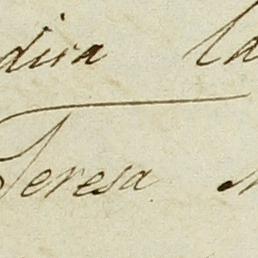 dira la
Teresa